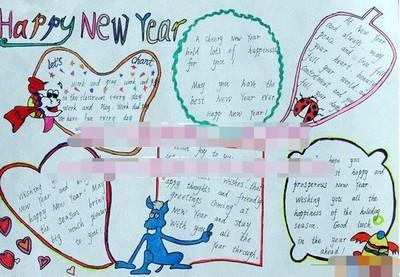 Happy New Year
let's chart
Work and play, work and play
in the classroom every day
Work and Play. Work did Play
we have fun every day
A cheery New Year
hold lots of happiness
for you!
May you have the
best New Year ever.
Happy New Year!
At New Year
and always, may
peace and love fill
your heart, beauty
fill your world, and
contentment and joy
fill your
Wishing you
New Year and
happy New Year. May
the season bring
much pleasure
to you!
joy to
wishes that
happy thoughts and friendly
greetings coming at
New Year and stay
with you all the
year through.
hope you
a happy and
prosperous New Year.
Wishing you all the
happiness of the holiday
season. Good luck
in the year
ahead!